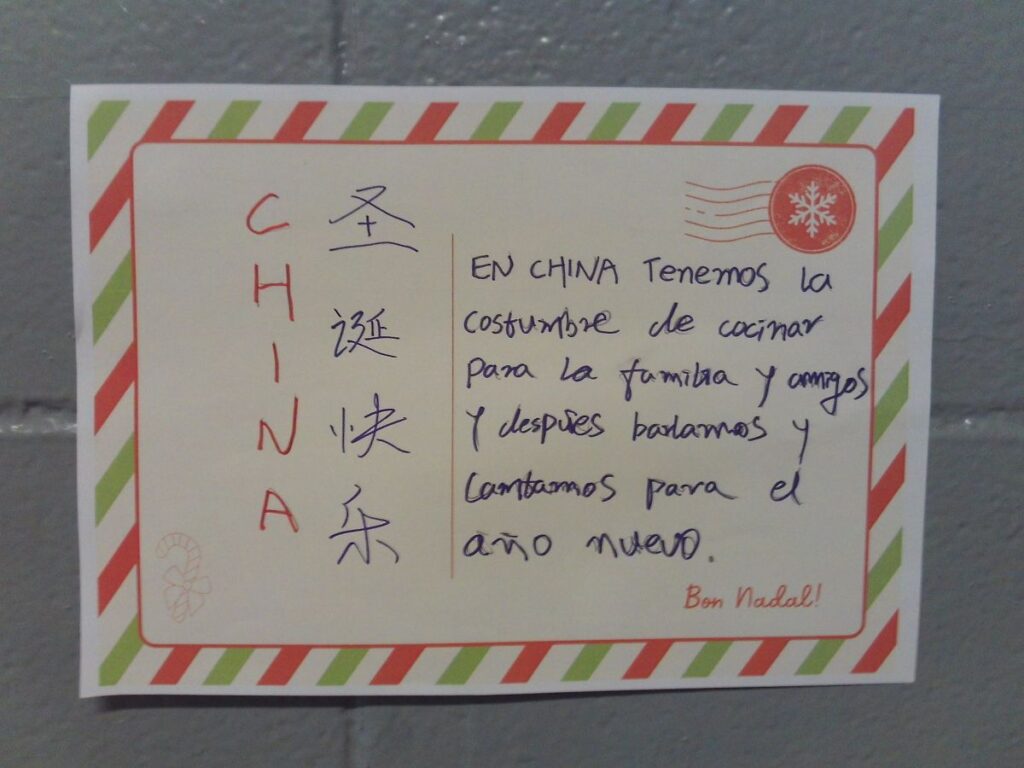 CHINA
圣诞快乐
EN CHINA Tenemos la
costumbre de cocinar
para la familia y amigos
Y despúes bailamos y
Cantamos para el
año nuevo.
Bon Nadal!